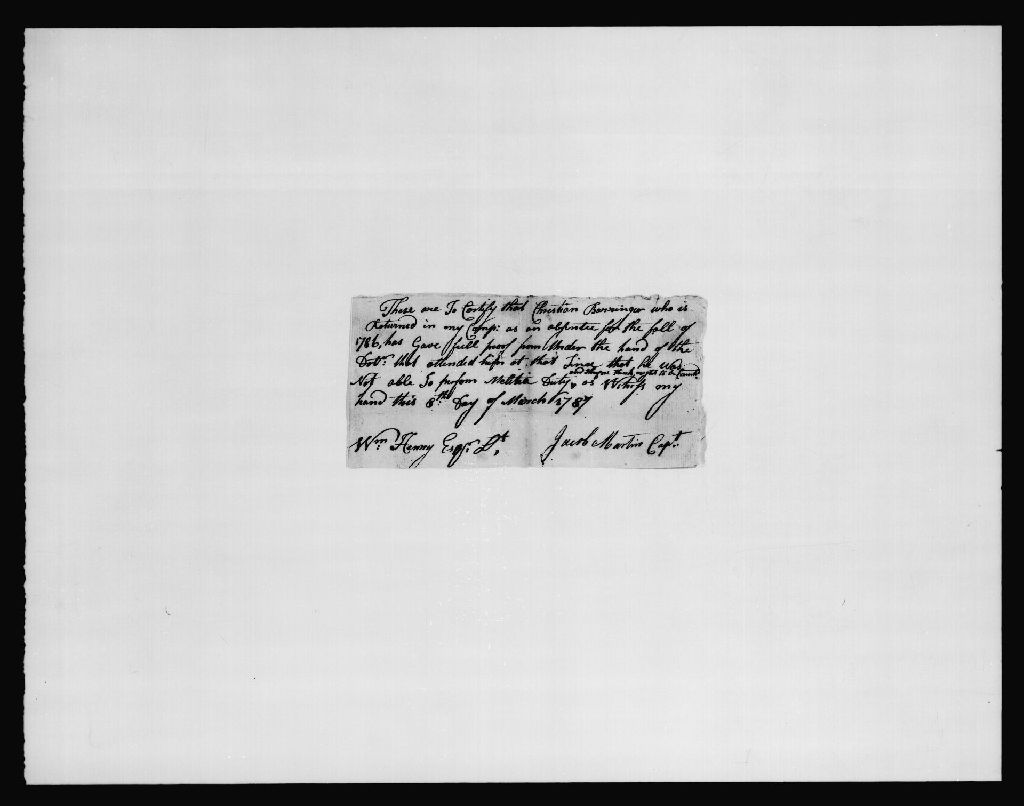 These are To Certify that Christian Barringer who is
Returned in my Comp: as an absentee for the fall of
1786, has Gave full proof from Under the hand of the
Dotr. that attended him at that Time that he Was
and therefore thinks ought to be
Not able To perform Melitia Duty, as Witness my
hand this 8th Day of March 1787
Wm. Henry Esqr. Lt. Jacob Martin Capt.